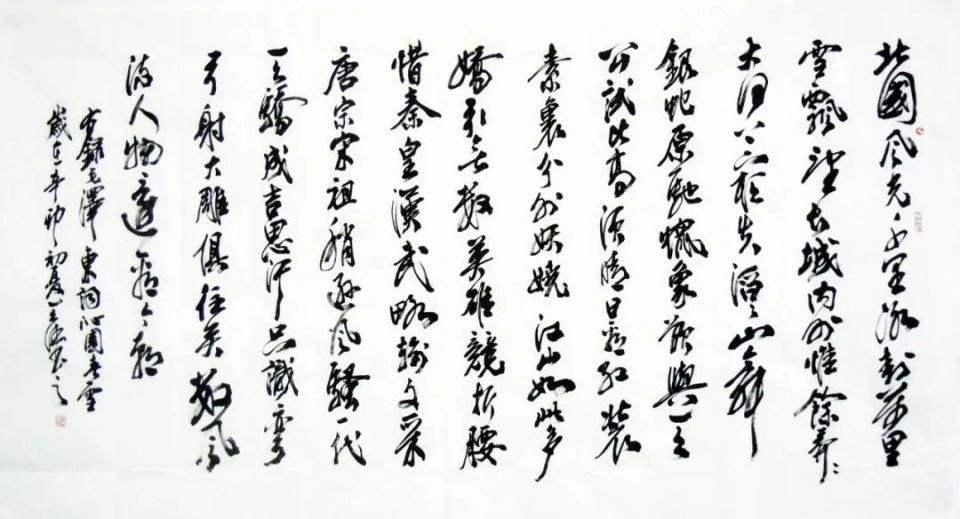 北國風光千里冰封萬里
雪飄望長城內外惟餘莽〻
大河上下頓失滔〻山舞
銀蛇原馳蠟象欲與天
公試比高須晴日看紅裝
素裹分外妖嬈江山如此多
嬌引無數英雄競折腰
惜秦皇漢武略輸文采
唐宗宋祖稍遜風騷一代
天驕成吉思汗只識彎
弓射大雕俱往矣數風
流人物還看今朝
右錄毛澤東詞沁園春雪
歲在辛卯初夏